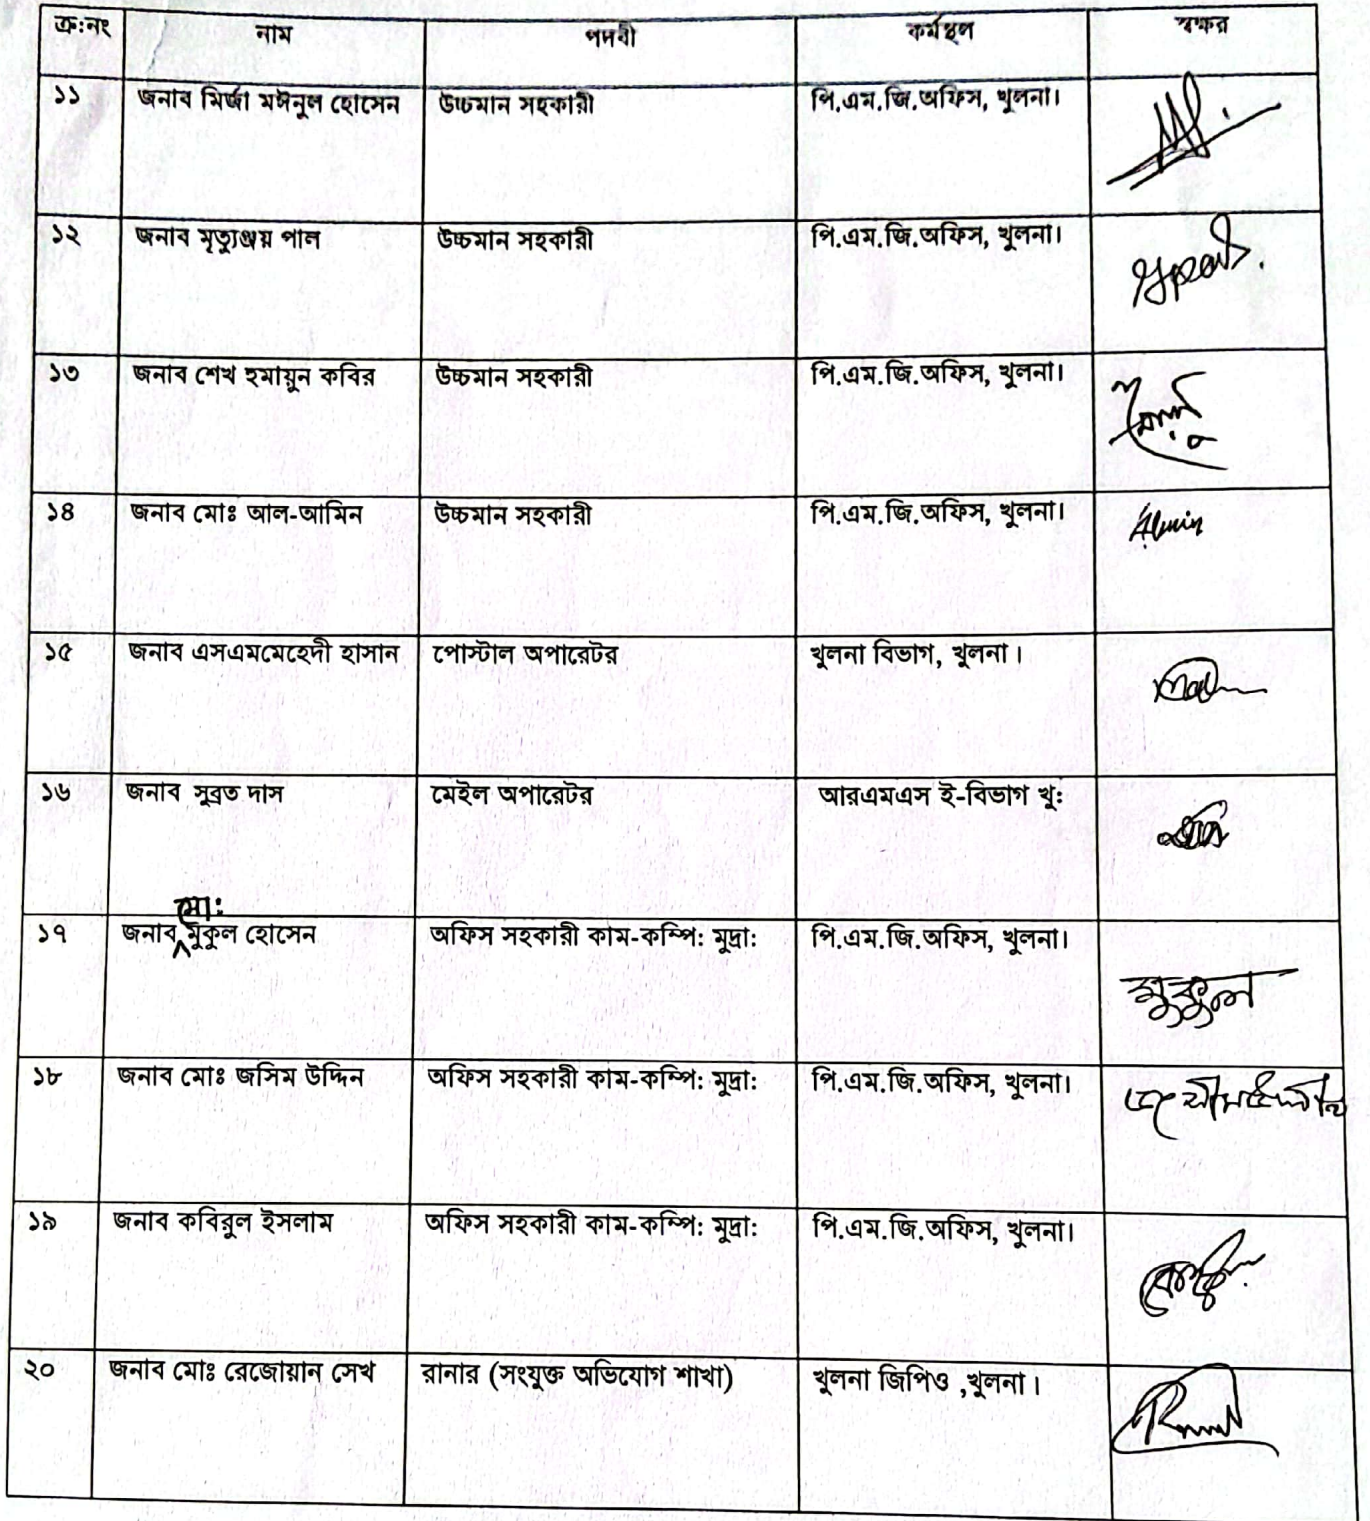 ক্র:নং নাম পদবী কর্মস্থল স্বক্ষর
১১ জনাব মির্জা মঈনুল হোসেন উচ্চমান সহকারী পি.এম.জি.অফিস, খুলনা।
১২ জনাব মৃত্যুঞ্জয় পাল উচ্চমান সহকারী পি.এম.জি.অফিস, খুলনা।
১৩ জনাব শেখ হুমায়ুন কবির উচ্চমান সহকারী পি.এম.জি.অফিস, খুলনা।
১৪ জনাব মোঃ আল-আমিন উচ্চমান সহকারী পি.এম.জি.অফিস, খুলনা। Alamin
১৫ জনাব এসএমমেহেদী হাসান পোস্টাল অপারেটর খুলনা বিভাগ, খুলনা।
১৬ জনাব সুব্রত দাস মেইল অপারেটর আরএমএস ই-বিভাগ খু:
মো:
১৭ জনাব মুকুল হোসেন অফিস সহকারী কাম-কম্পি: মুদ্রা: পি.এম.জি.অফিস, খুলনা। মুকুল
১৮ জনাব মোঃ জসিম উদ্দিন অফিস সহকারী কাম-কম্পি: মুদ্রা: পি.এম.জি.অফিস, খুলনা।
১৯ জনাব কবিরুল ইসলাম অফিস সহকারী কাম-কম্পি: মুদ্রা: পি.এম.জি.অফিস, খুলনা।
২০ জনাব মোঃ রেজোয়ান সেখ রানার (সংযুক্ত অভিযোগ শাখা) খুলনা জিপিও ,খুলনা।